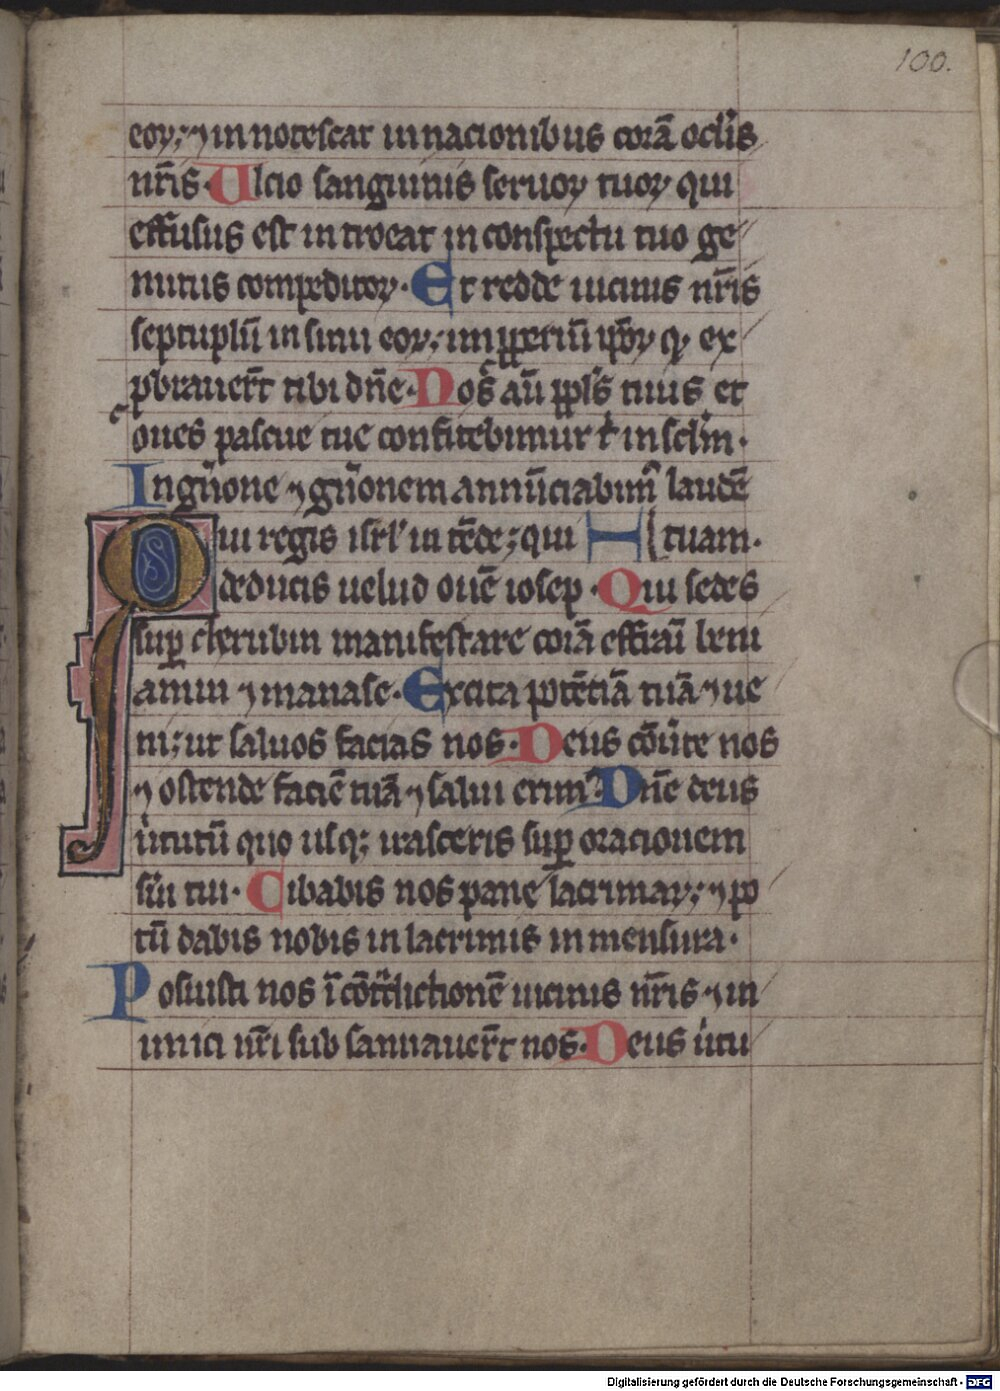 100.
eoꝝ; ⁊ in notescat in nacionibus corā oclis
nr̄is. Ulcio sanguinis seruoꝝ tuoꝝ qui
effusus est introeat in conspectu tuo ge
mitus compeditoꝝ. Et redde uicinis nr̄is
septuplū in sinu eoꝝ; imꝓꝑetiū ipoꝝ q̄ ex
pbrauer̄t tibi dn̄e. Nos au̅ ppls tuus et
oues pascue tue confitebimur t̉ in sclm̄.
In gn̄one ⁊ gn̄onem annūciabim᷒ laudē
Qui regis isrl' in tēde; qui tuam.
deducis uelud ouē iosep. Qui sedes
suꝑ cherubin manifestare corā effraī beni
amin ⁊ manase. Excita potēciā tuā ⁊ ue
ni; ut saluos facias nos. Deus cōu̓te nos
⁊ ostende faciē tuā ⁊ salui erim᷒. Dn̄e deus
u̓tutū quo usq; irasceris suꝑ oracionem
s̓ui tui. Cibabis nos pane lacrimaꝝ; ⁊ po
tū dabis nobis in lacrimis in mensura.
Posuisti nos ī cōtdictionē uicinis nr̄is ⁊ in
imici nr̄i sub sannauer̄t nos. Deus u̓tu
Digitalisierung gefördert durch die Deutsche Forschungsgemeinschaft - DFG